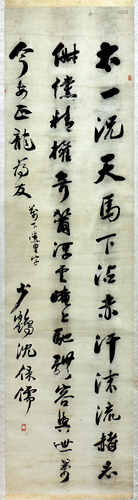 太一況天馬下沾赤汗沫流赭志
俶儻精權奇籋浮雲晻上馳體容與迣萬
今安匹龍為友 萬下遺里字
少鶴沈保儒